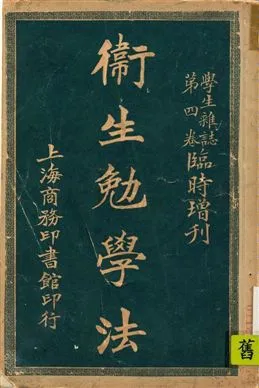 學生雜誌
第四卷臨時增刊
衞生勉學法
上海商務印書館印行
舊